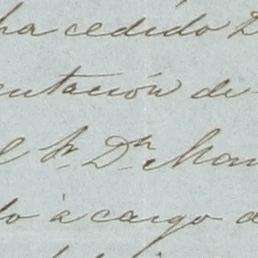 ha cedido D
entación de
el Sr. Dn. Man
do à cargo d